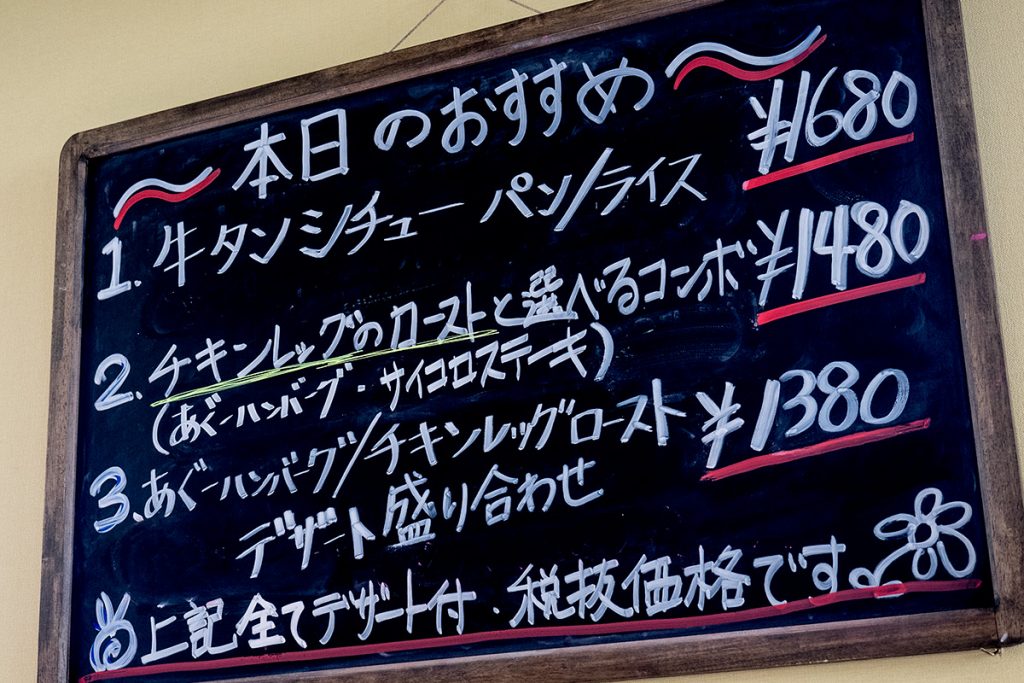 本日のおすすめ
1. 牛タンシチュー パン/ライス ¥1680
2. チキンレッグのローストと選べるコンボ ¥1480
(あぐーハンバーグ・サイコロステーキ)
3. あぐーハンバーグ/チキンレッグロースト ¥1380
デザート盛り合わせ
上記全てデザート付・税抜価格です。